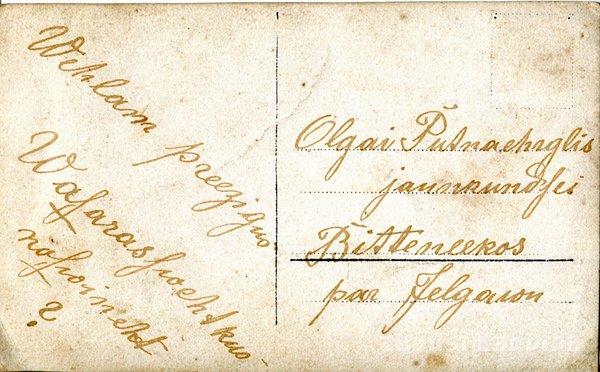 Wehlam preezigus
Wasarasswehtkus
nosvineht
?
Olgai Putnaehrglis
jaunkundsei
Bitteneekos
par Jelgawu